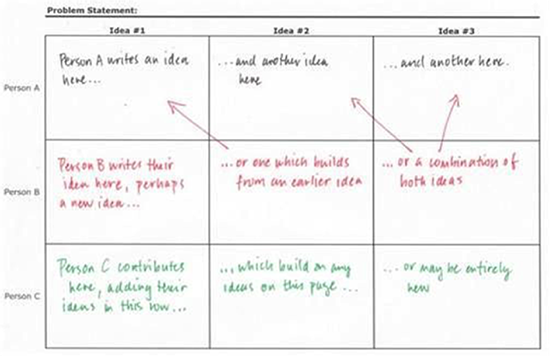 Problem Statement:
Idea #1 Idea #2 Idea #3
Person A
Person A writes an idea
here...
...and another idea
here
...and another here.
Person B
Person B writes their
idea here, perhaps
a new idea...
...or one which builds
from an earlier idea
...or a combination of
both ideas
Person C
Person C contributes
here, adding their
ideas in this row...
...which build on any
ideas on this page...
...or may be entirely
new